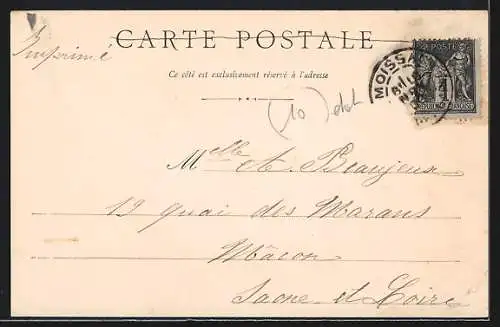 Imprimé
CARTE POSTALE
Ce côté est exclusivement réservé à l'adresse
POSTE
MOISSA
(10)
Melle A. Beaujeu
19 quai des Marans
Mâcon
Saone et Loire